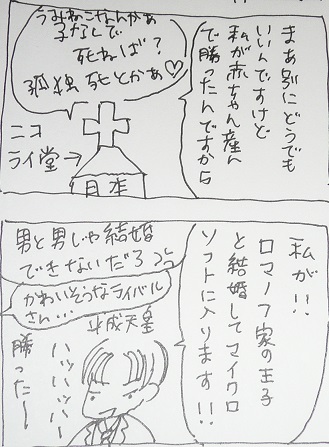 まあ別にどうでも
いいんですけど
私が赤ちゃん産ん
で勝ったんですから
うみねこさんかあ
子なしで
死ねば？
孤独死とかあ♡
ニコ
ライ堂→
日本
私が！！
ロマノフ家の王子
と結婚してマイクロ
ソフトに入ります！！
男と男じゃ結婚
できないだろ
かわいそうなライバル
さん…
平成天皇
ハッハッハー
勝ったー